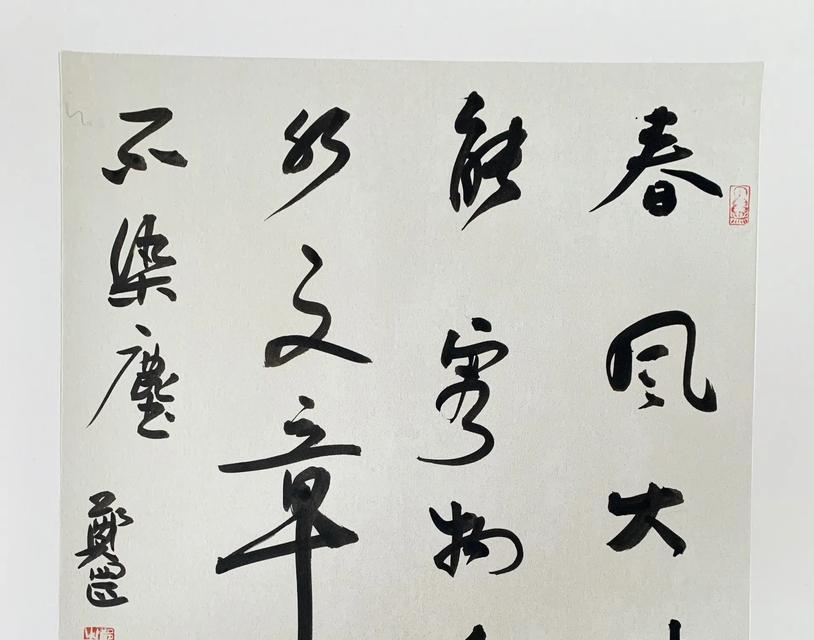 春風大
能容物
水文章
不染塵
鄭